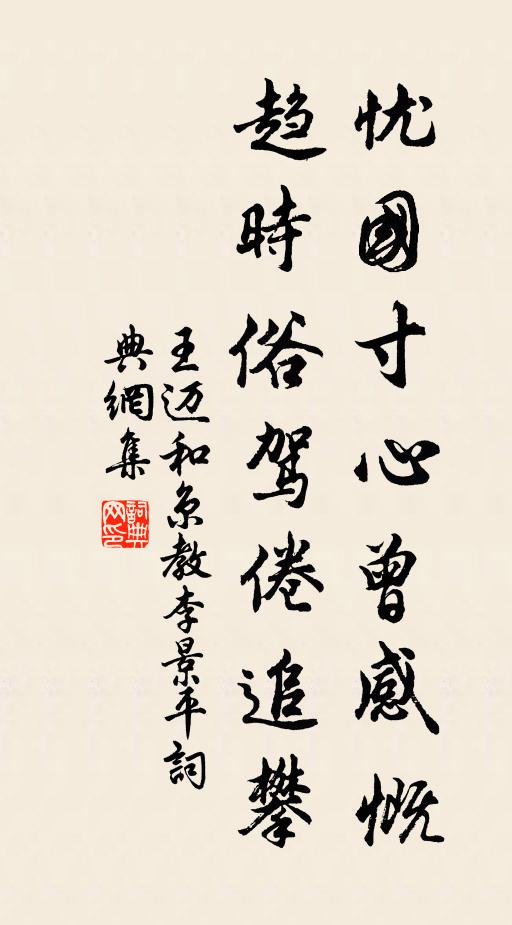 忧國寸心曾感慨
趋時俗驾倦追攀
王迈和京教李景平詞
典網集
詞典
网印